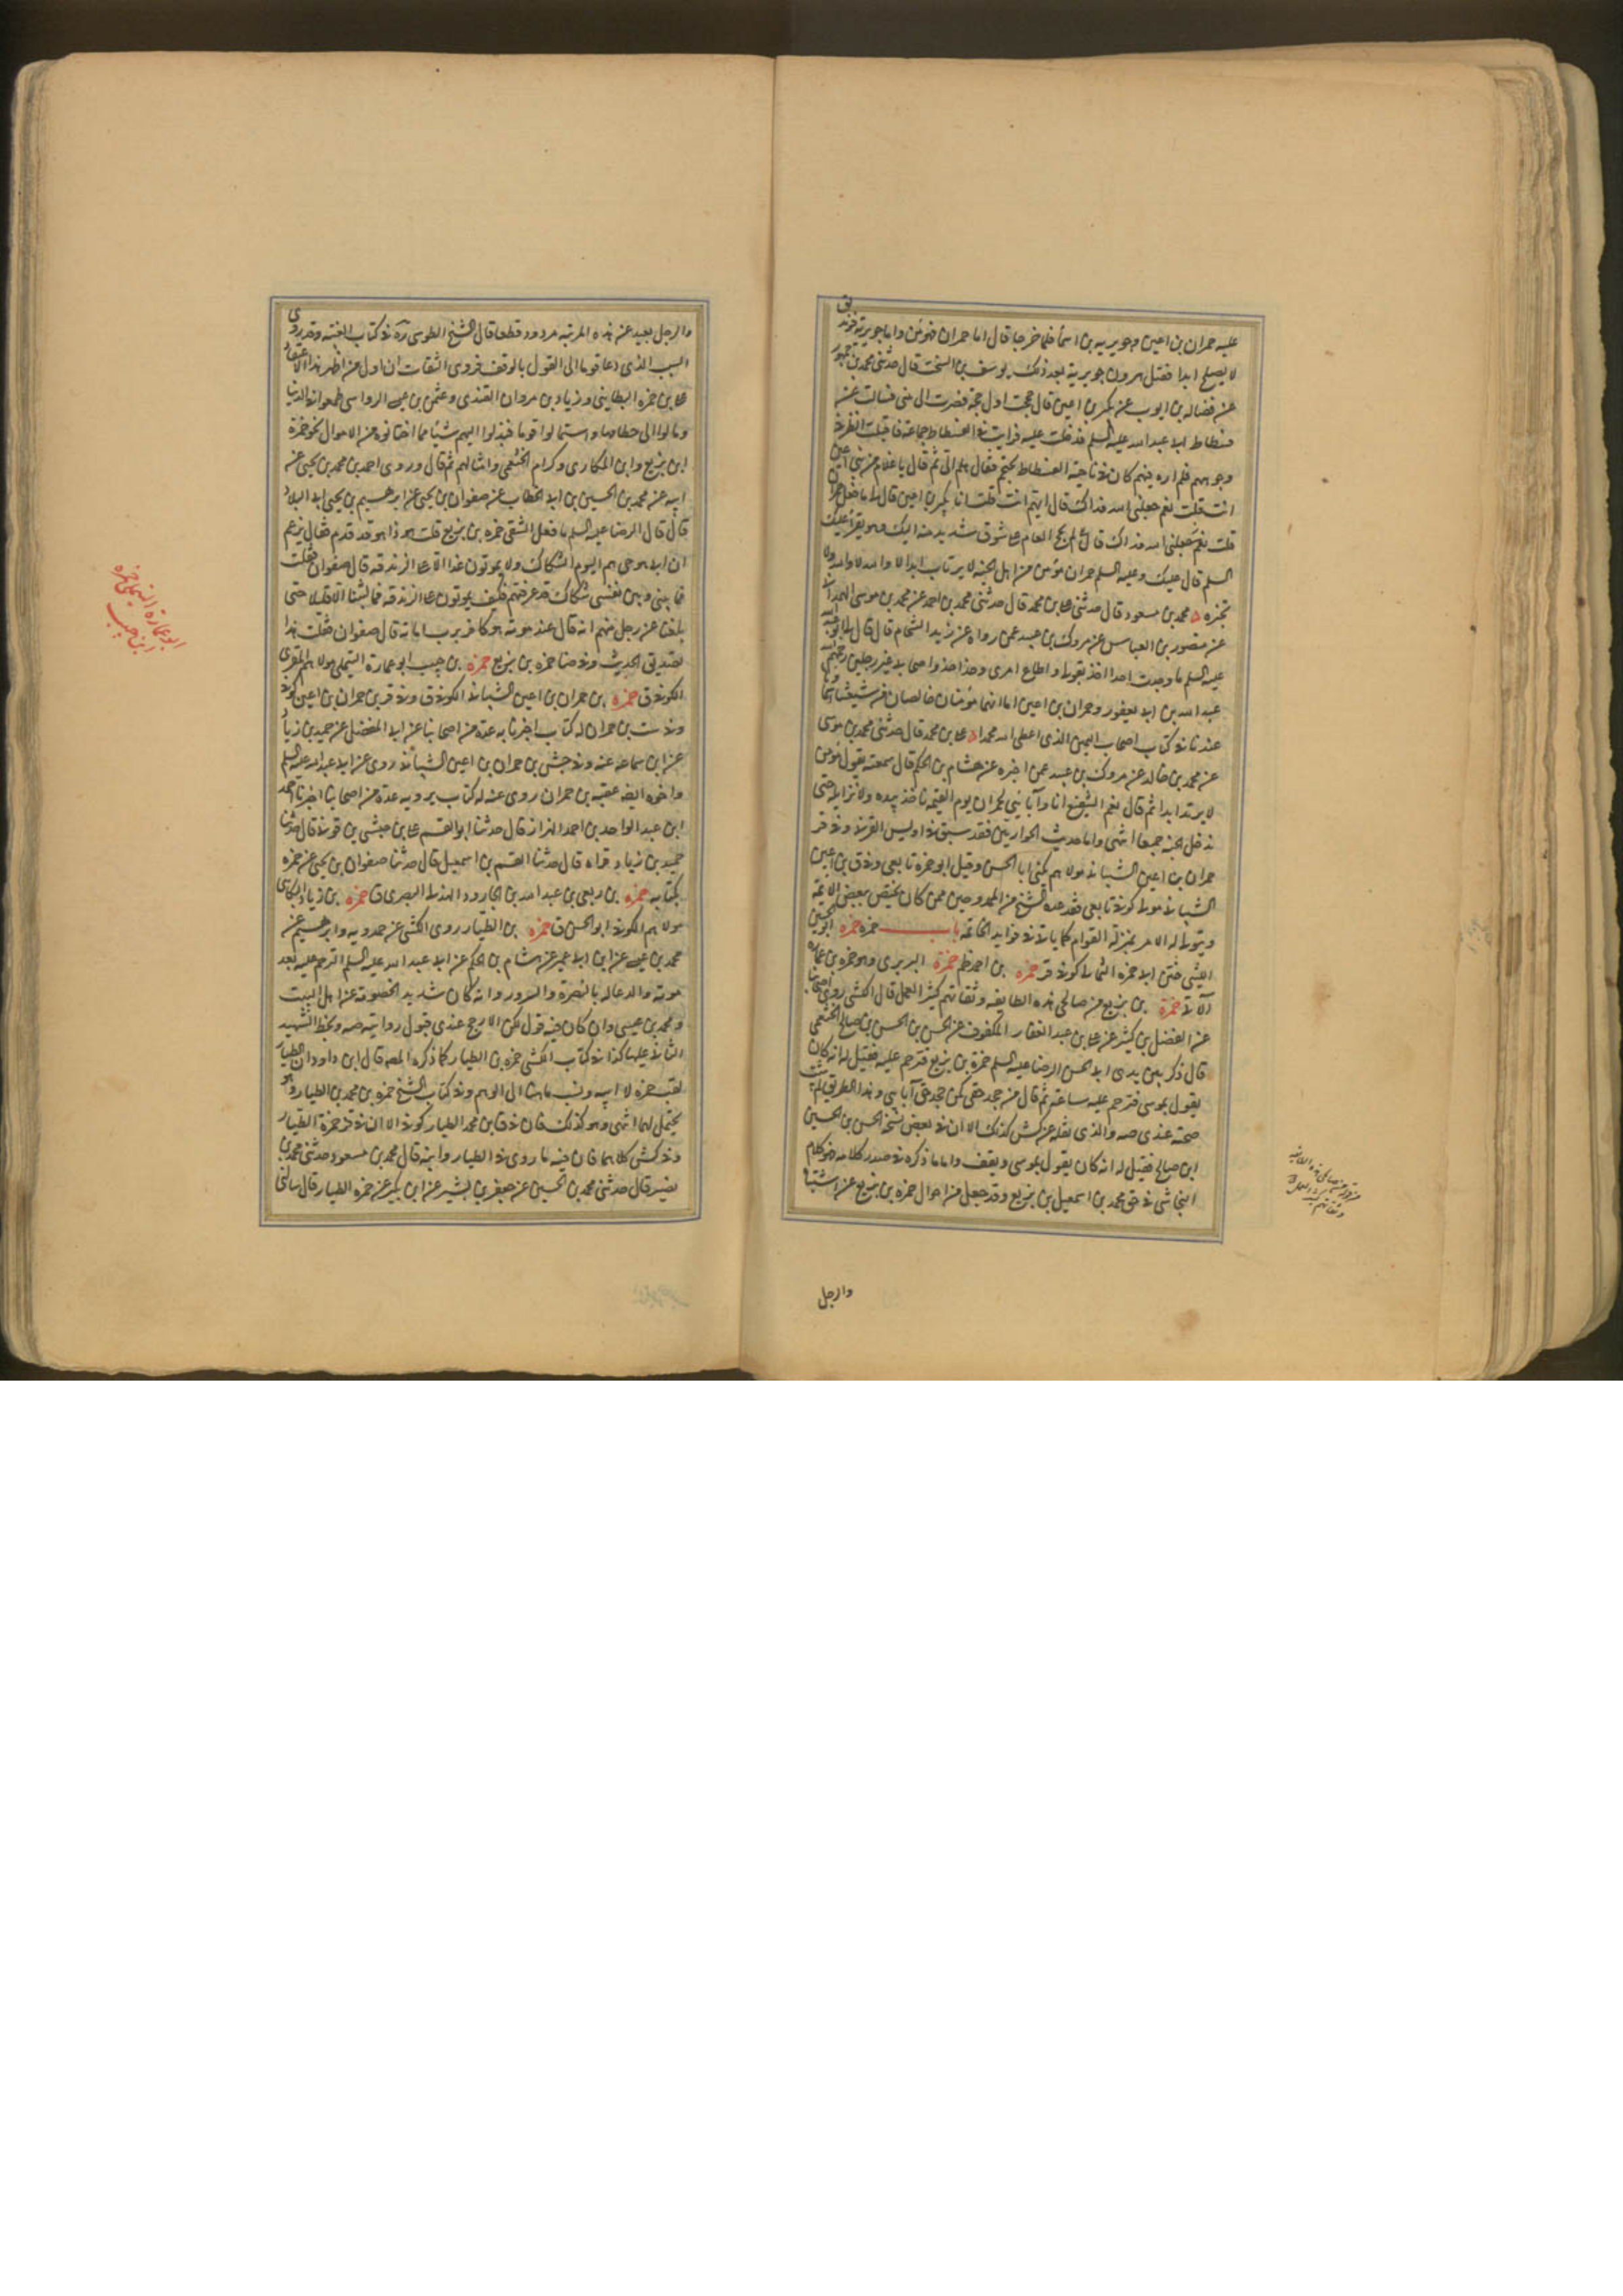 عليه حمران بن اعين وجويرية بن اسما فلما خرجا قال اما حمران فمؤمن واما جويرية فزنديق
لا يصلح ابدا فقتل هرون جويرية بعد ذلك يوسف بن السخت قال حدثنى محمد بن جمهور
عن فضاله بن ايوب عن بكير بن اعين قال حججت اول حجة فصرت الى منى فسالت عن
فسطاط ابى عبد الله عليه السلم فدخلت عليه فرايت فى الفسطاط جماعة فاقبلت انظر فى
وجوههم فلم اره فيهم كان فى ناحية الفسطاط يحتجم فقال هلم الى ثم قال يا غلام من بنى اعين
انت قلت نعم جعلنى الله فداك قال ايهم انت قلت انا بكير بن اعين قال لى ما فعل حمران
قلت لم يحج العام على شوق شديد منه اليك وهو يقرأ عليك
السلم قال عليك وعليه السلم حمران مؤمن من اهل الجنة لا يرتاب ابدا لا والله لا والله ولا
تخبره ه محمد بن مسعود قال حدثنى على بن محمد قال حدثنى محمد بن احمد عن محمد بن موسى الهمدانى
عن منصور بن العباس عن مروك بن عبيد عمن رواه عن زيد الشحام قال قال لى ابو عبد الله
عليه السلم ما وجدت احدا اخذ بقولى واطاع امرى وحذا حذو اصحاب ابى غير رجلين رحمهما الله
عبد الله بن ابى يعفور وحمران بن اعين اما انهما مؤمنان خالصان من شيعتنا اسماؤهما
عندنا فى كتاب اصحاب اليمين الذى اعطى الله محمدا ه على بن محمد قال حدثنى محمد بن موسى
عن محمد بن خالد عن مروك بن عبيد عمن اخبره عن هشام بن الحكم قال سمعته يقول مؤمن
لا يرتد ابدا ثم قال نعم الشفيع انا وآبائى لحمران يوم القيمة ناخذ بيده ولا نزايله حتى
ندخل الجنة جميعا انتهى واما حديث الحواريين فقد سبق فى اويس القرنى وفى قر
حمران بن اعين الشيبانى مولاهم يكنى ابا الحسن وقيل ابو حمزه تابعى وفى ق بن اعين
الشيبانى مولى كوفى تابعى وقد عده الشيخ من الممدوحين ممن كان يختص ببعض الائمة
ويتولى له الامر بمنزلة القوام كما ياتى فى فوايد الخاتمة باب حمزه حمزه ابو يحيى
الليثى ختن ابى حمزه الثمالى كوفى قر حمزه بن احمد ظم حمزة البربرى وهو حمزه بن عماره
الآتى حمزة بن بزيع من صالحى هذه الطايفه وثقاتهم كثير العمل قال الكشى روى اصحابنا
عن الفضل بن كثير عن على بن عبد الغفار المكفوف عن الحسن بن الحسن بن صالح الخثعمى
قال ذكر بين يدى ابى الحسن الرضا عليه السلم حمزة بن بزيع فترحم عليه فقيل له انه كان
يقول بموسى فترحم عليه ساعة ثم قال من جحد حقى كمن جحد حق آبائى وهذا الطريق لم يثبت
صحته عندى صه والذى نقله عن كش كذلك الا ان فى بعض نسخه الحسن بن الحسين
ابن صالح فقيل له انه كان يقول بموسى ويقف واما ما ذكره فى صدر كلامه فهو كلام
النجاشى فى حق محمد بن اسمعيل بن بزيع وقد جعل من احوال حمزه بن بزيع عن اشتباه
والرجل
والرجل بعيد عن هذه المرتبه مردود قطعا قال الشيخ الطوسى ره فى كتاب الغيبة وقد روى
السبب الذى دعا قوما الى القول بالوقف فروى الثقات ان اول من اظهر هذا الاعتقاد
على بن حمزه البطاينى وزياد بن مروان القندى وعثمن بن عيسى الرواسى طمعوا فى الدنيا
ومالوا الى حطامها واستمالوا قوما فبذلوا اليهم شيئا مما اختانوه من الاموال نحو حمزة
ابن بزيع وابن المكارى وكرام الخثعمى وامثالهم ثم قال وروى احمد بن محمد بن يحيى عن
ابيه عن محمد بن الحسين بن ابى الخطاب عن صفوان بن يحيى عن ابرهيم بن يحيى ابى البلاد
قال قال الرضا عليه السلم ما فعل الشقى حمزه بن بزيع قلت هو ذا هو قد قدم فقال يزعم
ان ابى حى هم اليوم الشكاك ولا يموتون غدا الا على الزندقه قال صفوان فقلت
فيما بينى وبين نفسى شكاك قد عرفتهم فكيف يموتون على الزندقه فما لبثنا الا قليلا حتى
بلغنا عن رجل منهم انه قال عند موته هو كافر برب اماته قال صفوان فقلت هذا
تصديق الحديث وفى ضا حمزه بن بزيع حمزه بن حبيب ابو عمارة التيملى مولاهم المقرى
الكوفى ق حمزه بن حمران بن اعين الشيبانى الكوفى ق وفى قر بن حمران بن اعين كوفى
وفى ست بن حمران له كتاب اخبرنا به عدة من اصحابنا عن ابى المفضل عن حميد بن زياد
عن ابن سماعه عنه وفى جش بن حمران بن اعين الشيبانى روى عن ابى عبد الله عليه السلم
واخوه ايضا عقبه بن حمران روى عنه له كتاب يرويه عدة من اصحابنا اخبرنا احمد
ابن عبد الواحد بن احمد البزاز قال حدثنا ابو القسم على بن حبشى بن قونى قال حدثنا
حميد بن زياد قراه قال حدثنا القسم بن اسمعيل قال حدثنا صفوان بن يحيى عن حمزه
بكتابه حمزه بن ربعى بن عبد الله بن الجارود الهذلى البصرى ق حمزه بن زياد البكائى
مولاهم الكوفى ابو الحسن ق حمزه بن الطيار روى الكشى عن حمدويه وابرهيم عن
محمد بن عيسى عن ابن ابى عمير عن هشام بن الحكم عن ابى عبد الله عليه السلم الترحم عليه بعد
موته والدعا له بالنضرة والسرور وانه كان شديد الخصومة عن اهل البيت
ومحمد بن عيسى وان كان فيه قول لكن الارجح عندى قبول روايته صه وبخط الشهيد
الثانى عليها كذا فى كتاب الكشى حمزه بن الطيار كما ذكره المصه قال ابن داود ان الطيار
لقب حمزه لا ابيه ونسب ما هنا الى الوهم وفى كتاب الشيخ حمزه بن محمد بن الطيار وهو
يحتمل لهما انتهى وهو كذلك فان فى ق بن محمد الطيار كوفى الا ان فى قر حمزة الطيار
وفى كش كلاهما فان فيه ما روى فى الطيار وابنه قال محمد بن مسعود حدثنى محمد بن
نصير قال حدثنى محمد بن الحسين عن جعفر بن بشير عن ابن بكير عن حمزه الطيار قال سالنى
ابو عمارة التيملى حمزه
ابن حبيب